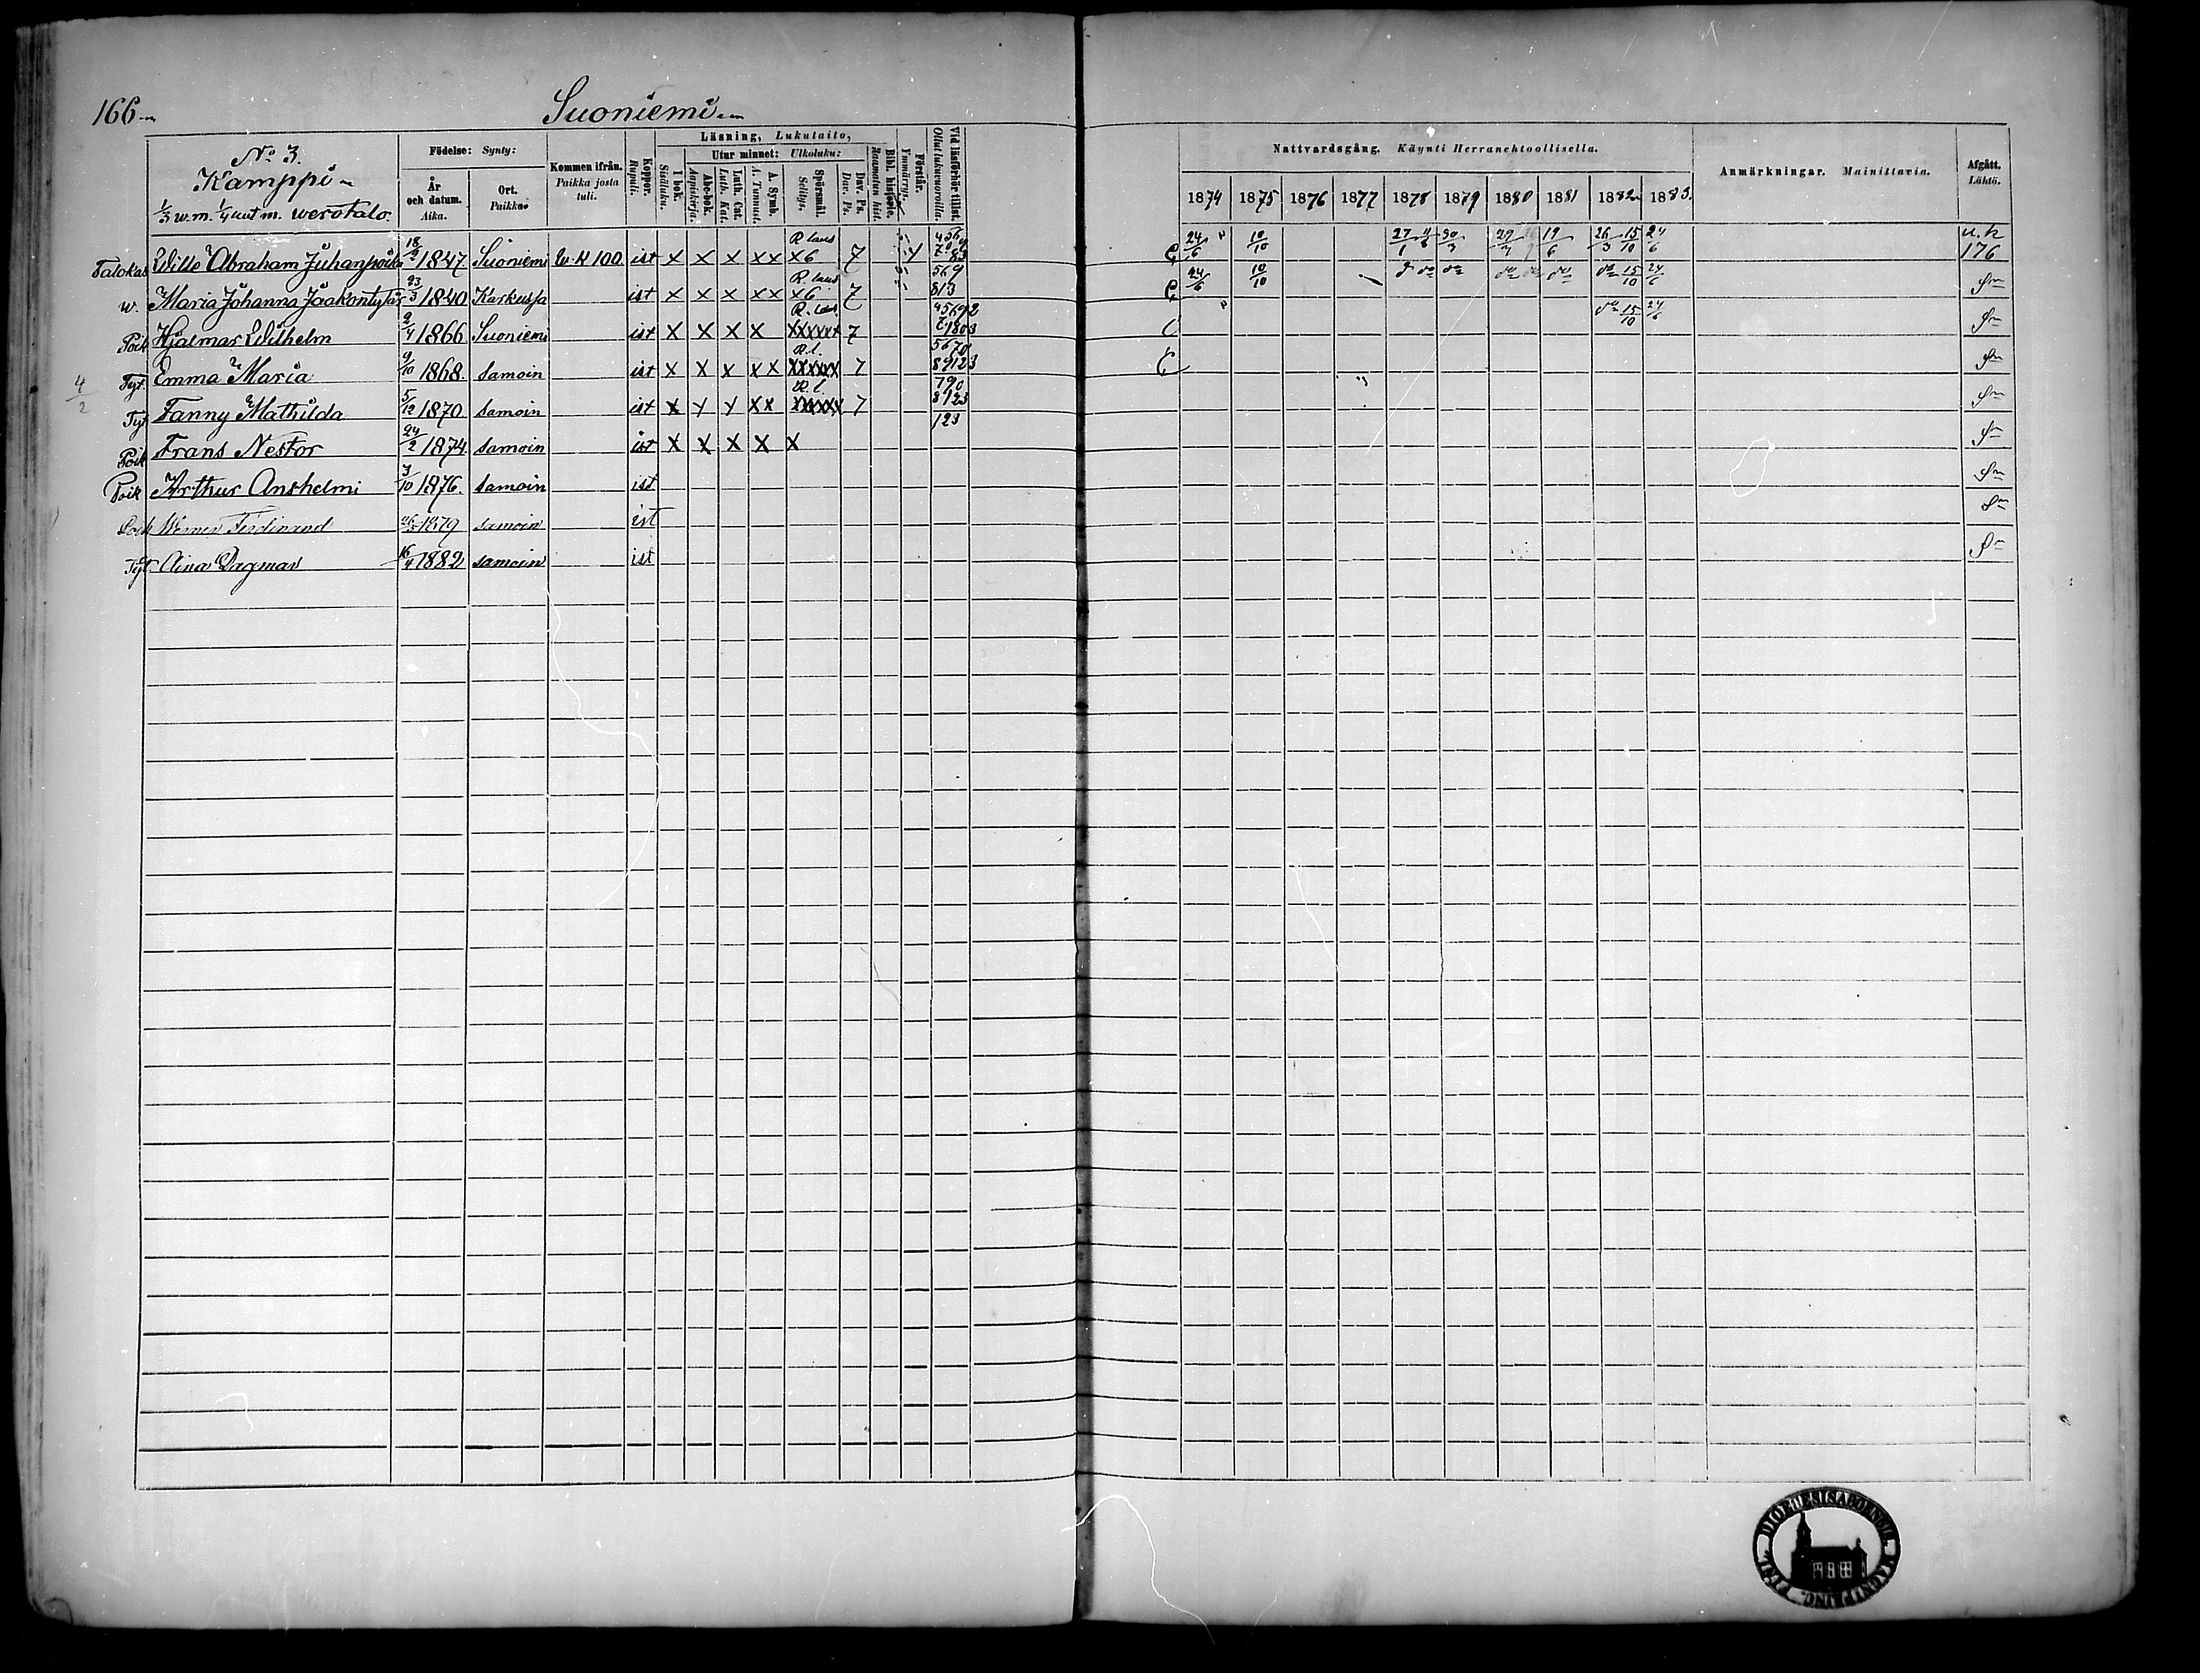 166
Suoniemi
No 3.
Kamppi
1/3 w.m. werotalo.
Födelse: Synty:
År och datum. Aika.
Ort. Paikka
Kommen ifrån. Paikka josta tuli.
Koppor. Rupuli.
Läsning, Lukutaito,
I bok. Sisäluku.
Utur minnet: Ulkoluku:
Abc-bok. Aapiskirja.
Luth. Cat. Luth. Kat.
A. Symb. A. Tunnust.
Spörsmål. Selitys.
Dav. Ps. Dav. Ps.
Bibl. historie. Raamatun hist.
Förstår. Ymmärrys.
Vid läsförhör tillst. Ollut lukuvuoroilla.
Nattvardsgång. Käynti Herranehtoollisella.
1874 1875 1876 1877 1878 1879 1880 1881 1882 1883.
Anmärkningar. Mainittavia.
Afgått. Lähtö.
Talokas Wille Abraham Juhanpoika 18/2 1847. Suoniemi 100. ist x x x xx R. laus x6 7 24/6 10/10 27/1 30/3 19/6 26/3 15/10 24/6 u.k 176
w. Maria Johanna Jaakontytär 23/3 1840 Karkussa ist x x x xx R. laus x6 7 569 813 24/6 10/10 15/10 24/6
Poik Hjalmar Wilhelm 2/4 1866 Suoniemi ist x x x x xxxxx 7 15/10 24/6
Tyt. Emma Maria 9/10 1868. Samoin ist x x x xx R.l. xxxxx 7 89123
4/2
Tyt Fanny Mathilda 5/12 1870. Samoin ist x y y xx R.l. xxxxx 7 790 8123
Poik Frans Nestor 24/2 1874. Samoin ist x x x x x 123
Poik Arthur Anshelmi 3/10 1876. Samoin ist
Poik Werner Ferdinand 1879 samoin ist
Tyt Aina Dagmar 16/4 1882 samoin ist